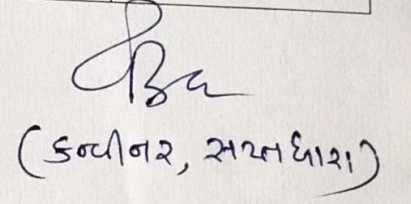 (કન્વીનર, સપ્તધારા)